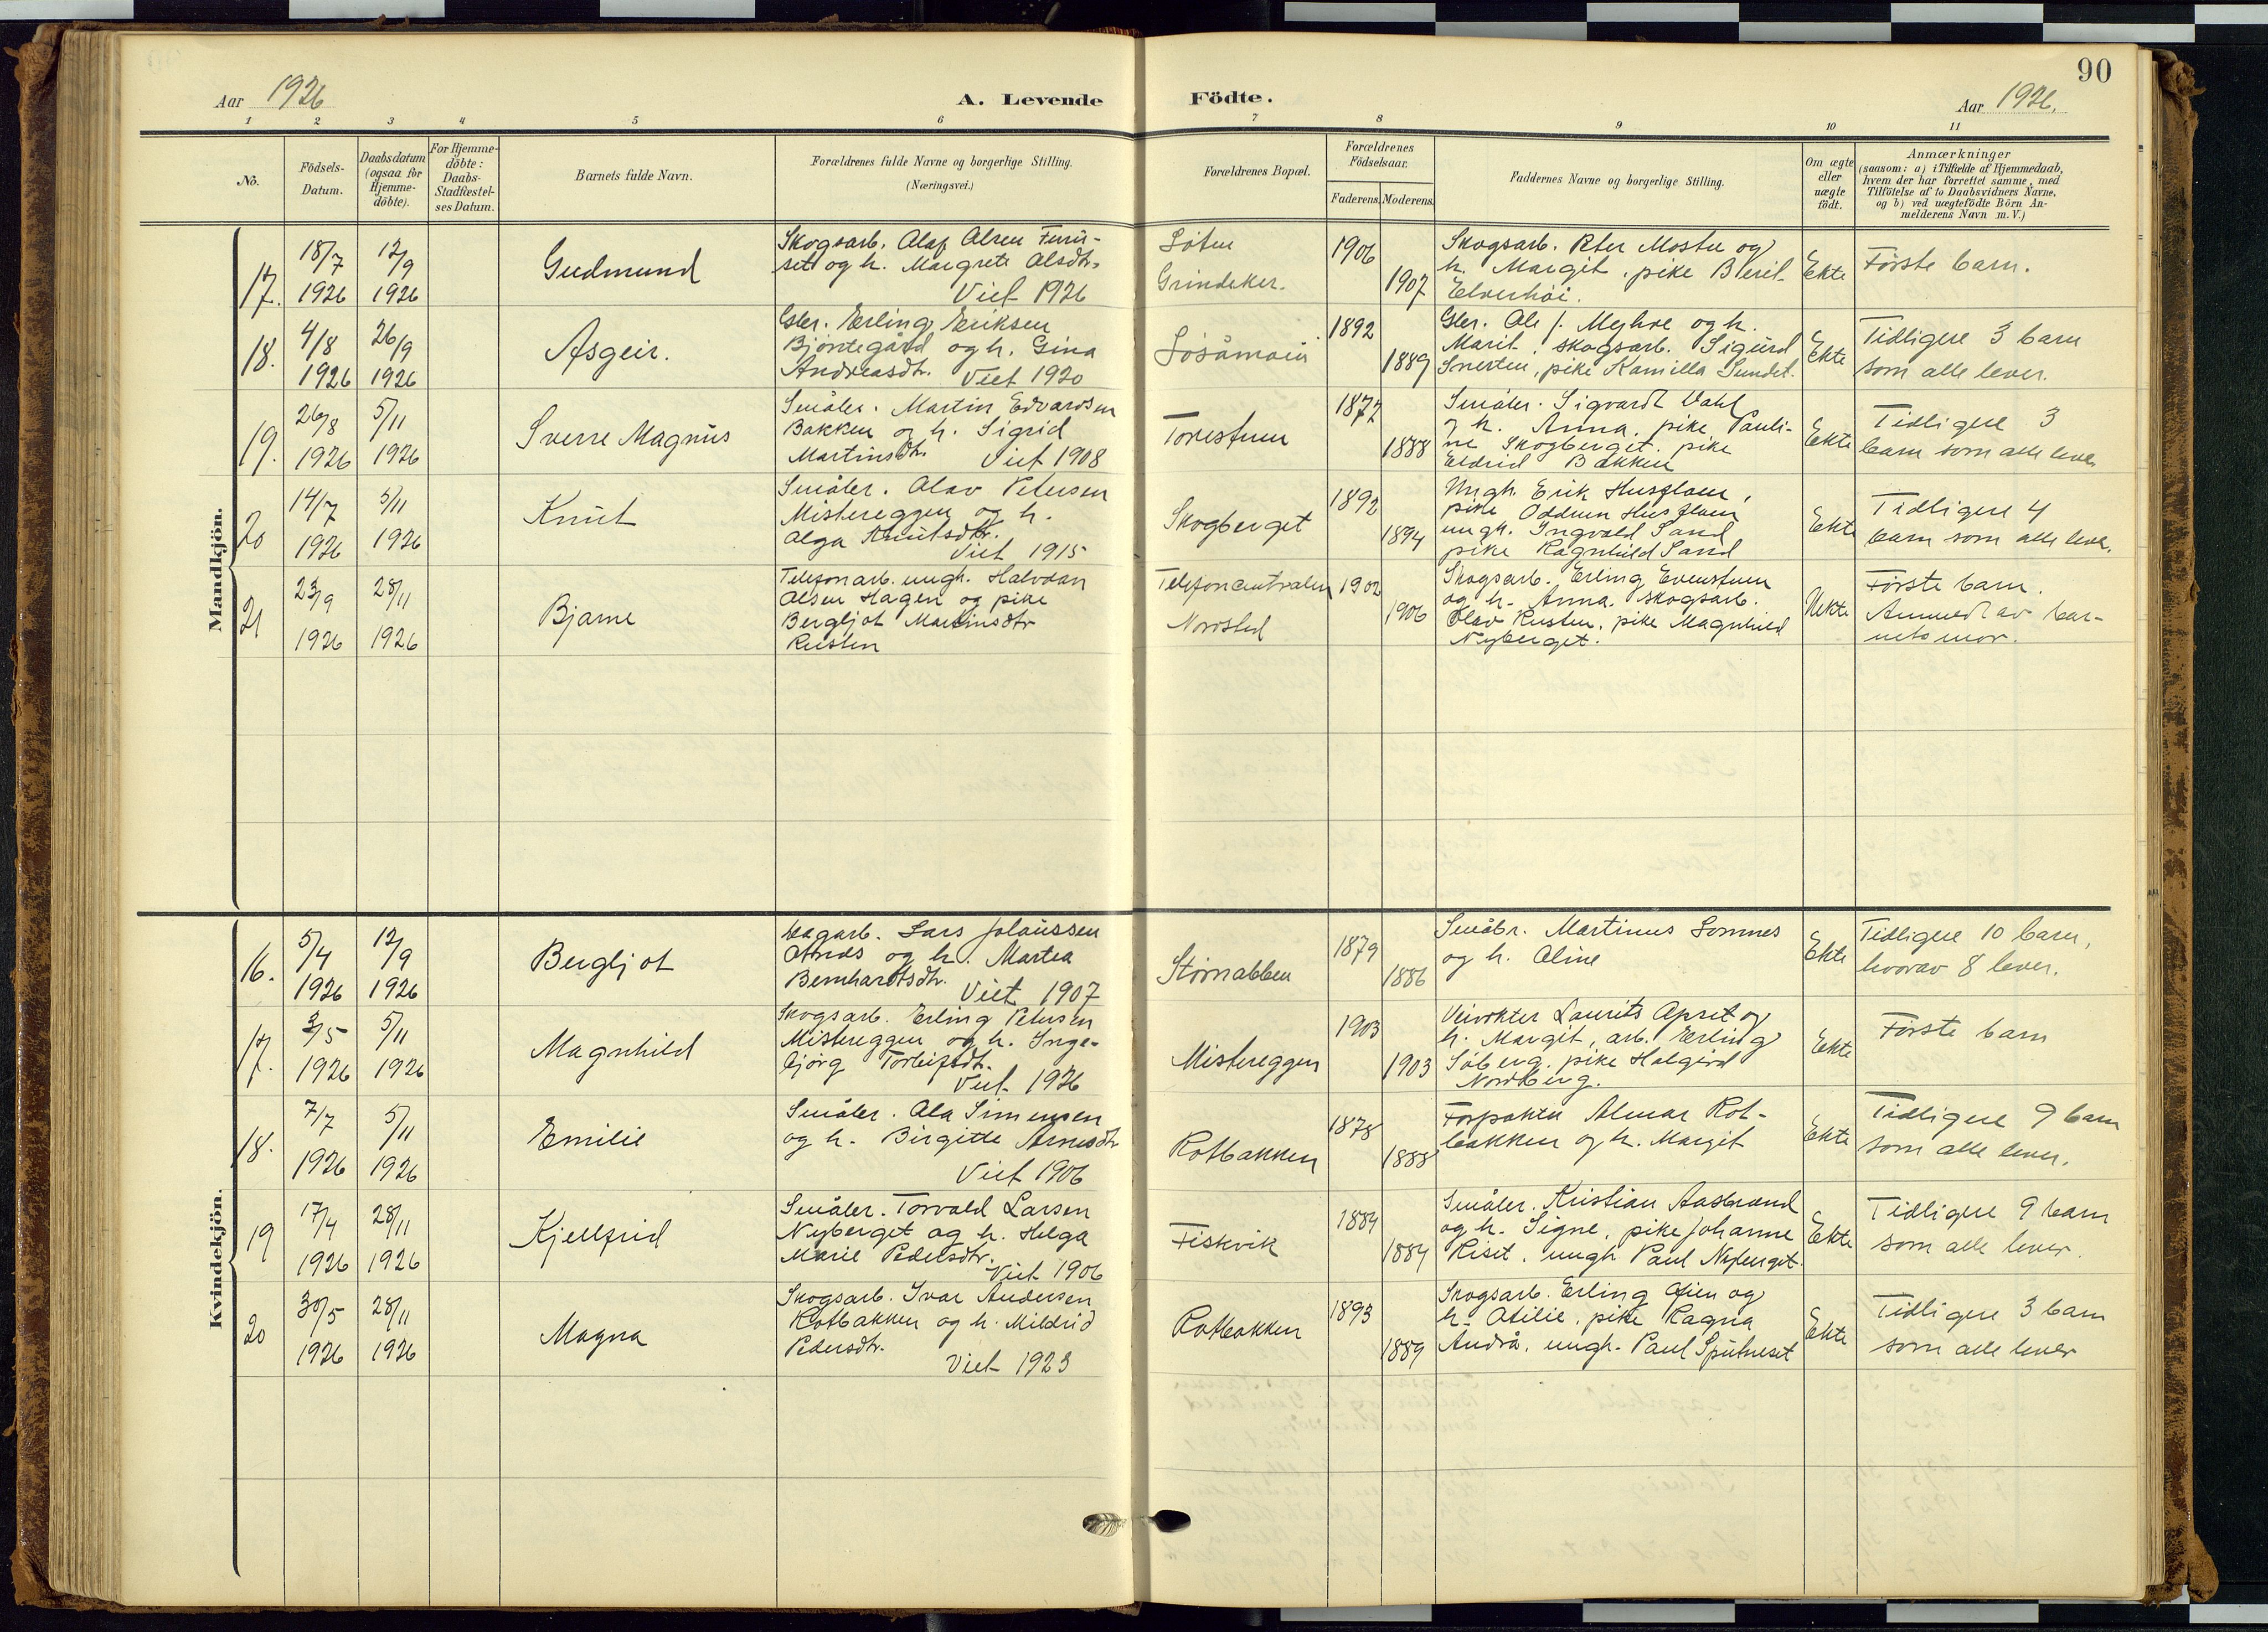 90
Aar 1926
A. Levende
Födte.
Aar 1926.
1 2 3 4 5 6 7 8 9 10 11
No.
Födsels-
Datum.
Daabsdatum
(ogsaa for
Hjemme-
döbte).
For Hjemme-
döbte:
Daabs-
Stadfæstel-
ses Datum.
Barnets fulde Navn.
Forældrenes fulde Navne og borgerlige Stilling.
(Næringsvei.)
Forældrenes Bopæl.
Forældrenes
Födselsaar.
Faderens. Moderens.
Faddernes Navne og borgerlige Stilling.
Om ægte
eller
uægte
födt.
Anmærkninger
(saasom: a) i Tilfælde af Hjemmedaab,
hvem der har forrettet samme, med
Tilföielse af to Daabsvidners Navne,
og b) ved uægtefödte Börn An-
melderens Navn m. V.)
Mandkjön.
17.
18/7
1926
12/9
1926
Gudmund
Skogsarb. Olaf Olsen Furu-
set og h. Margrete Olsdtr.
Viet 1926
Löten
Grindeker.
1906
1907
Skogsarb. Peter Mostu og
h. Margit, pike Beril
Elverhöi.
Ekte
Förste barn.
18.
4/8
1926
26/9
1926
Asgeir.
Gbr. Erling Eriksen
Bjöntegård og h. Gina
Andreasdtr. Viet 1920
Lösåmoen
1892
1889
Gbr. Ole J. Mejhoe og h.
Marit, skogsarb. Sigurd
Snerten, pike Kamilla Sundet.
Ekte
Tidligere 3 barn
som alle lever.
19.
26/8
1926
5/11
1926
Sverre Magnus
Småbr. Martin Edvardsen
Bakken og h. Sigrid
Martinsdtr. Viet 1908
Torrestuen
1877
1888
Småbr. Sigvardt Dahl
og h. Anna, pike Pauli-
ne Skogberget, pike
Eldrid Bakken
Ekte
Tidligere 3
barn som alle lever
20
14/7
1926
5/11
1926
Knut
Småbr. Olav Petersen
Mistereggen og h.
Olga Knutsdtr.
Viet 1915
Skogberget
1892
1894
Ungk. Erik Husfloen,
pike Oddrun Husfloen
ungk. Ingvald Sand
pike Ragnhild Sand
Ekte
Tidligere 4
barn som alle lever.
21
23/9
1926
28/11
1926
Bjarne
Telefonarb. ungk. Halvdan
Olsen Hagen og pike
Bergljot Martinsdtr
Rusten
Telefoncentralen
Nordsted
1902
1906
Skogsarb. Erling Evenstuen
og h. Anna, skogsarb.
Olav Rusten, pike Magnhild
Nyberget.
Uekte
Förste barn.
Anmeldt av bar-
nets mor.
Kvindekjön.
16.
5/4
1926
12/9
1926
Bergljot
Dagarb. Lars Johanssen
Amds og h. Martea
Bernhardtsdtr.
Viet 1907
Störnabben
1879
1886
Småbr. Martinus Lomnes
og h. Aline
Ekte
Tidligere 10 barn,
hvorav 8 lever.
17.
3/5
1926
5/11
1926
Magnhild
Skogsarb. Erling Petersen
Mistereggen og h. Inge-
björg Torleifsdtr.
Viet 1926
Mistereggen
1903
1903
Veivokter Laurits Opset og
h. Margit, arb. Erling
Söberg, pike Halgerd
Nordberg.
Ekte
Förste barn
18.
7/7
1926
5/11
1926
Emilie
Småbr. Ola Simensen
og h. Birgitte Arnesdtr
Viet 1906
Rotbakken
1878
1888
Forpakter Almar Rot-
bakken og h. Margit
Ekte
Tidligere 9 barn
som alle lever.
19
17/4
1926
28/11
1926
Kjellfrid
Småbr. Torvald Larsen
Nyberget og h. Helga
Marie Pedersdtr.
Viet 1906
Fiskvik
1884
1884
Småbr. Kristian Aasbrænd
og h. Signe, pike Johanne
Riset, ungk. Paul Nyberget.
Ekte
Tidligere 9 barn
som alle lever.
20
30/5
1926
28/11
1926
Magna
Skogsarb. Ivar Andersen
Rotbakken og h. Mildrid
Pedersdtr.
Viet 1923
Rotbakken
1893
1889
Skogsarb. Erling Öien og
h. Otilie, pike Ragna
Andrå, ungk. Paul Sputneset
Ekte
Tidligere 3 barn
som alle lever